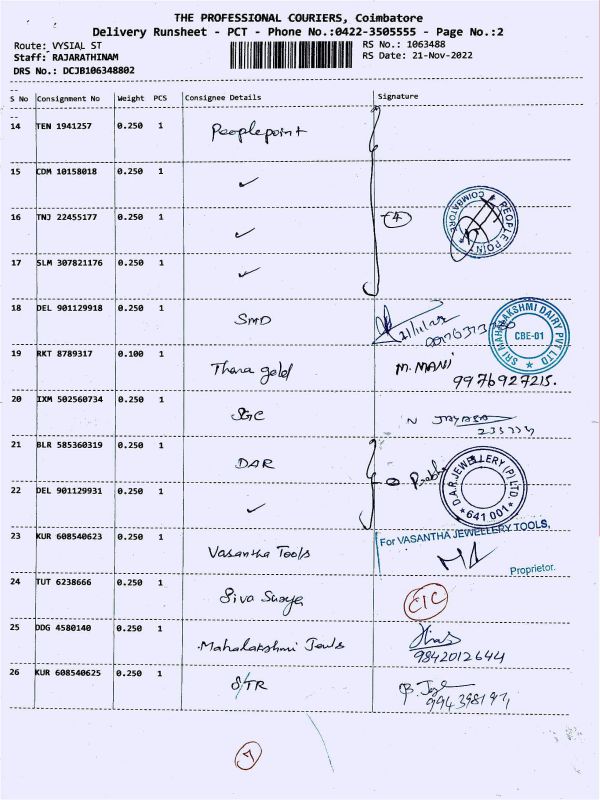 THE PROFESSIONAL COURIERS, Coimbatore
Delivery Runsheet - PCT - Phone No.:0422-3505555 - Page No.:2
Route: VYSIAL ST
RS No.: 1063488
Staff: RAJARATHINAM
RS Date: 21-Nov-2022
DRS No.: DCJB106348802
S No Consignment No Weight PCS Consignee Details Signature
14 TEN 1941257 0.250 1 Peoplepoint
15 CDM 10158018 0.250 1 ✓
16 TNJ 22455177 0.250 1 ✓ 4
PEOPLE POINT COIMBATORE
17 SLM 307821176 0.250 1 ✓
18 DEL 901129918 0.250 1 SMD
SRI MAHALAKSHMI DAIRY PVT LTD
CBE-01
19 RKT 8789317 0.100 1 Thara gold M. MANI
9976927215.
20 IXM 502560734 0.250 1 SGC
21 BLR 585360319 0.250 1 DAR
D.A.R. JEWELLERY (P) LTD. 641 001
22 DEL 901129931 0.250 1 ✓
23 KUR 608540623 0.250 1 Vasantha Tools
For VASANTHA JEWELLERY TOOLS,
Proprietor.
24 TUT 6238666 0.250 1 Siva Surya CIC
25 DDG 4580140 0.250 1 Mahalakshmi Jewls
9842012644
26 KUR 608540625 0.250 1 STR
7